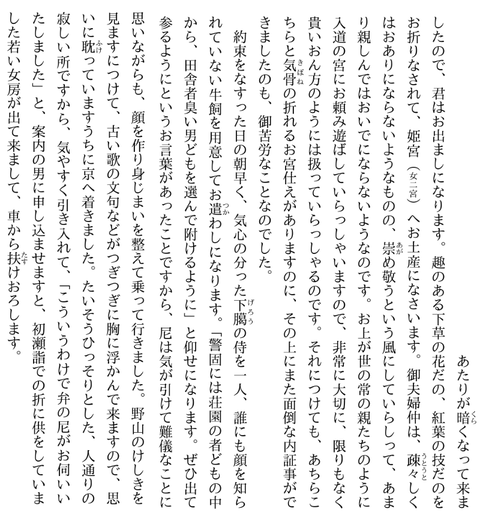 あたりが暗くなって来ま
したので、君はお出ましになります。趣のある下草の花だの、紅葉の技だのを
お折りなされて、姫宮（女二宮）へお土産になさいます。御夫婦仲は、疎々しく
はおありにならないようなものの、崇め敬うという風にしていらしって、あま
り親しんではおいでにならないようなのです。お上が世の常の親たちのように
入道の宮にお頼み遊ばしていらっしゃいますので、非常に大切に、限りもなく
貴いおん方のようには扱っていらっしゃるのです。それにつけても、あちらこ
ちらと気骨の折れるお宮仕えがありますのに、その上にまた面倒な内証事がで
きましたのも、御苦労なことなのでした。
約束をなすった日の朝早く、気心の分った下﨟の侍を一人、誰にも顔を知ら
れていない牛飼を用意してお遣わしになります。「警固には荘園の者どもの中
から、田舎者臭い男どもを選んで附けるように」と仰せになります。ぜひ出て
参るようにというお言葉があったことですから、尼は気が引けて難儀なことに
思いながらも、顔を作り身じまいを整えて乗って行きました。野山のけしきを
見ますにつけて、古い歌の文句などがつぎつぎに胸に浮かんで来ますので、思
いに耽っていますうちに京へ着きました。たいそうひっそりとした、人通りの
寂しい所ですから、気やすく引き入れて、「こういうわけで弁の尼がお伺いい
たしました」と、案内の男に申し込ませますと、初瀬詣での折に供をしていま
した若い女房が出て来まして、車から扶けおろします。